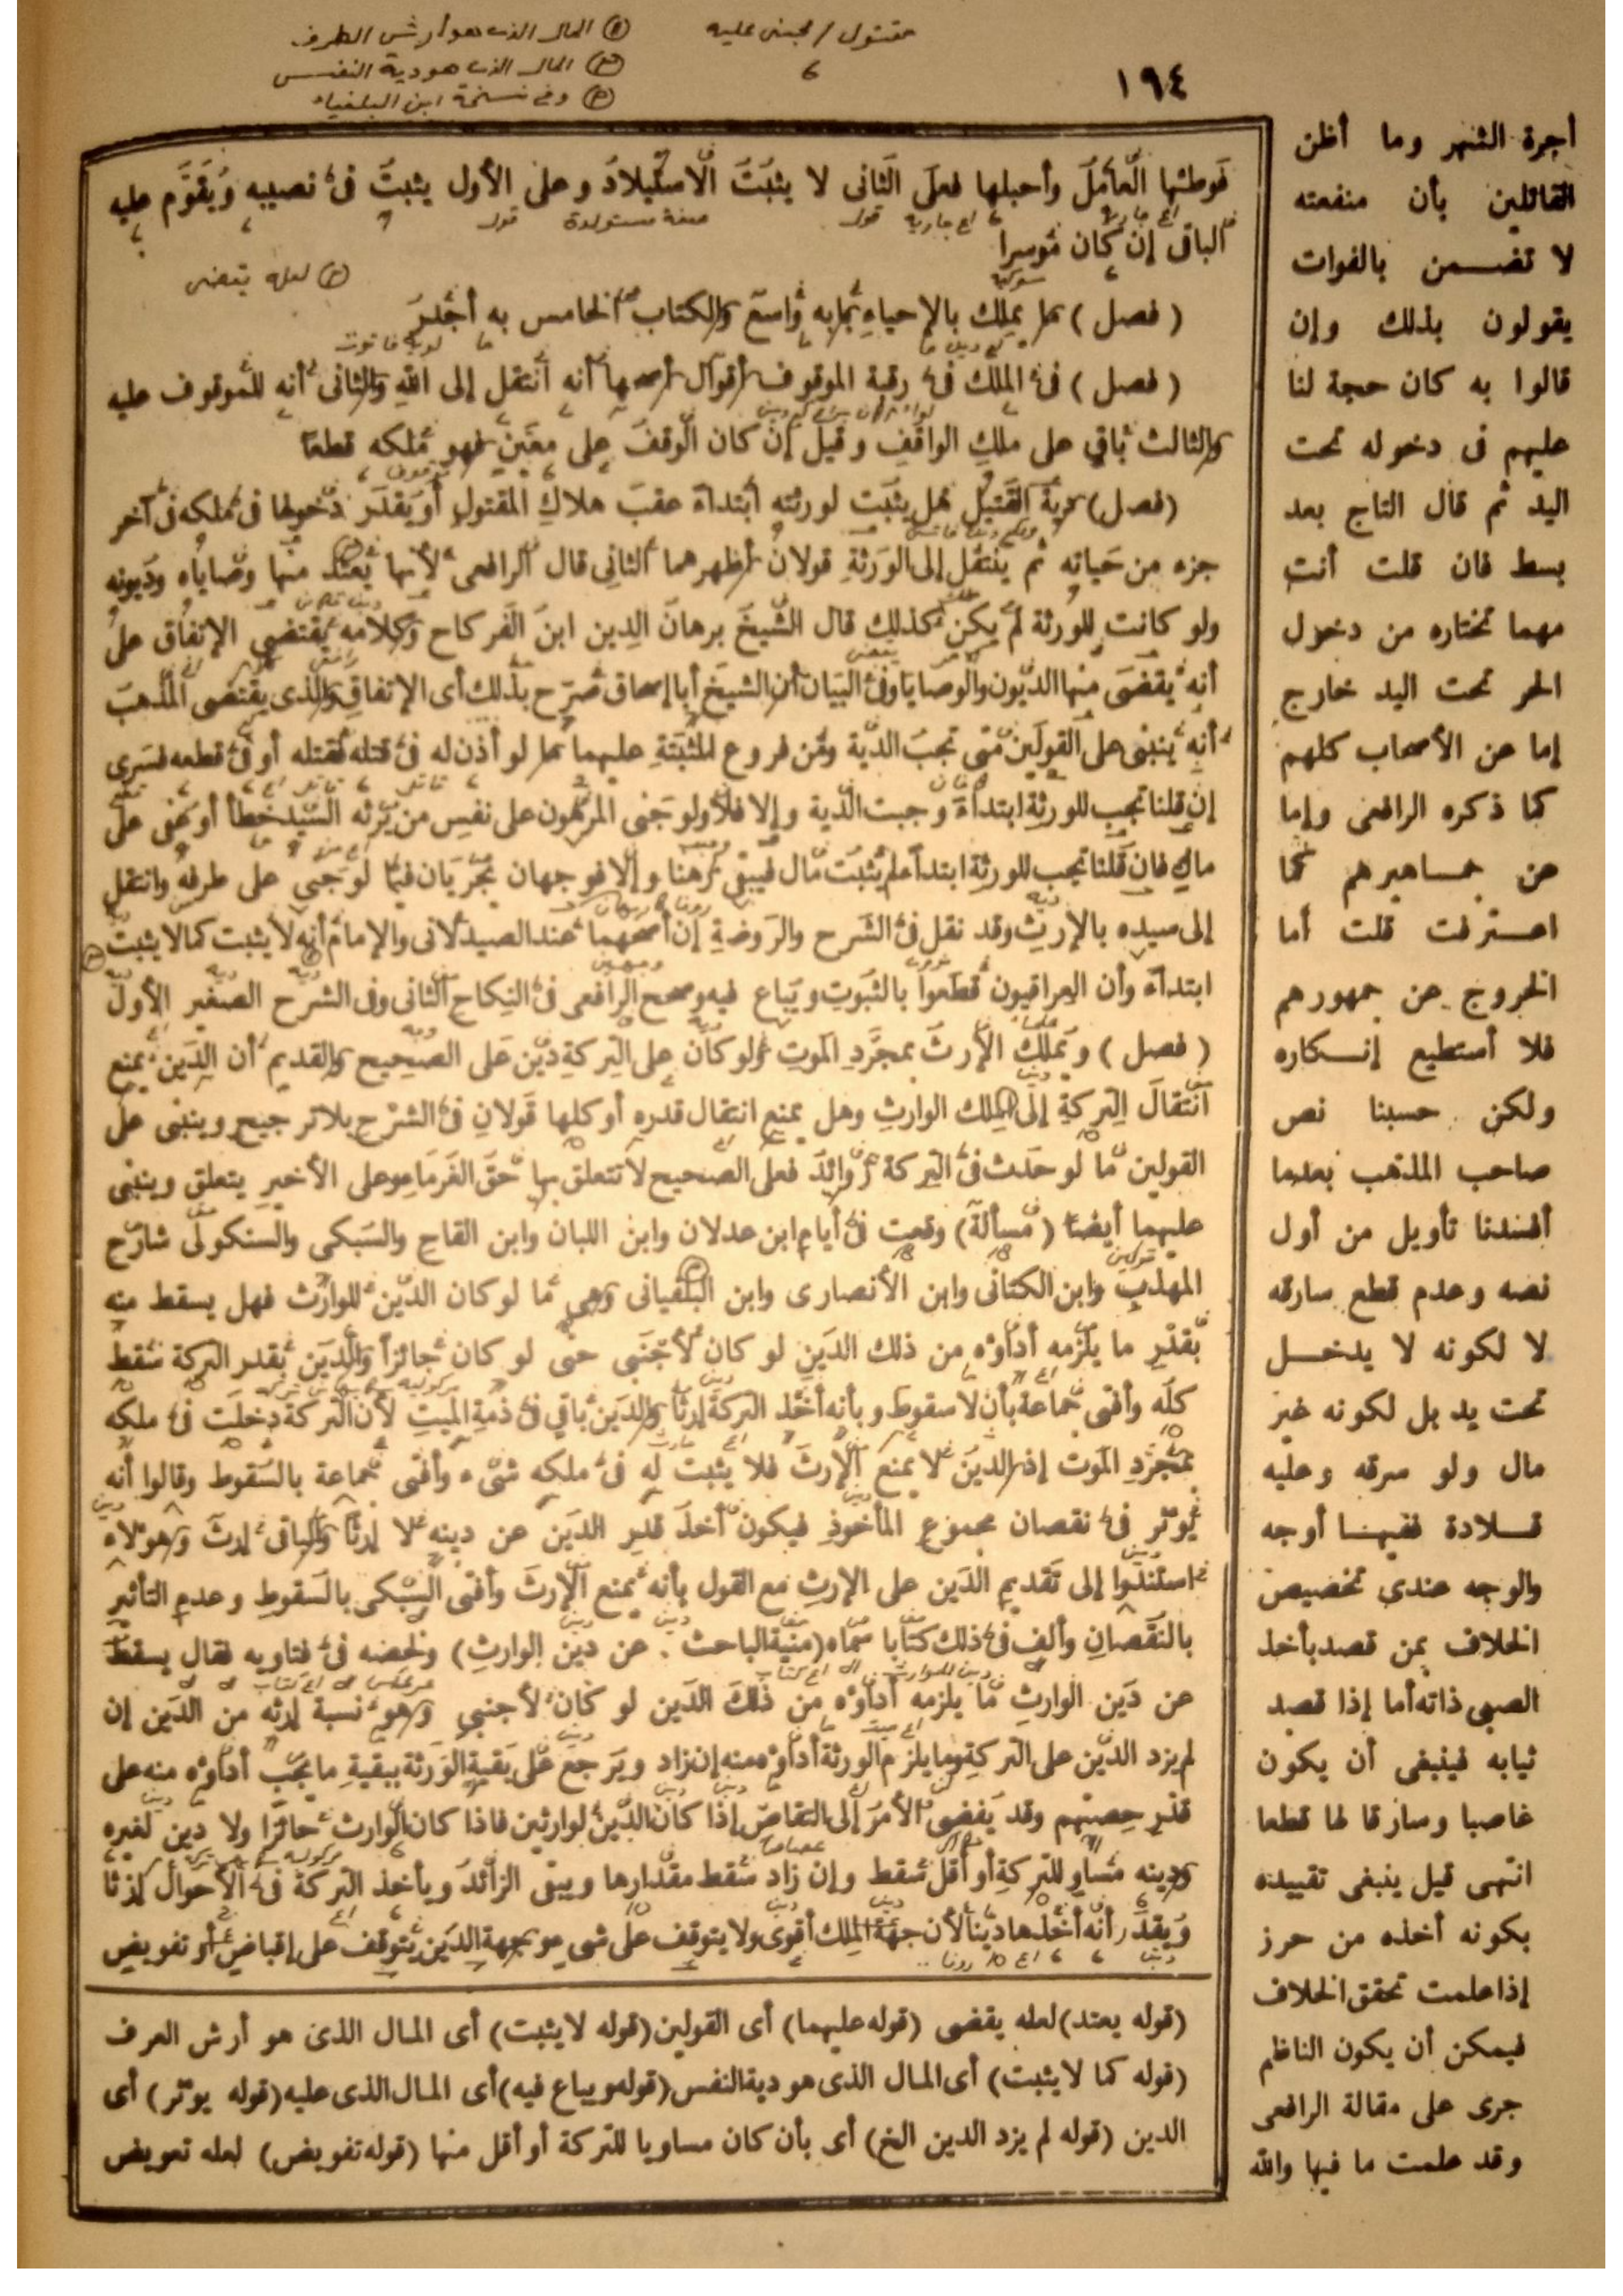 مقتول / مجنى عليه
٦
١٩٤
فوطئها العامل وأحبلها فعلى الثانى لا يثبت الاستيلاد وعلى الأول يثبت فى نصيبه ويقوم عليه
الباقى إن كان موسرا
( فصل ) ما يملك بالإحياء بابه واسع والكتاب الخامس به أجدر
( فصل ) فى الملك فى رقبة الموقوف أقوال أصحها أنه انتقل إلى الله والثانى أنه للموقوف عليه
والثالث باقى على ملك الواقف وقيل إن كان الوقف على معين فهو ملكه قطعا
(فصل) دية القتيل هل يثبت لورثته ابتداء عقب هلاك المقتول أو يقدر دخولها فى ملكه فى آخر
جزء من حياته ثم ينتقل إلى الورثة قولان أظهرهما الثانى قال الرافعى لأنها يعتد منها وصاياه وديونه
ولو كانت للورثة لم يكن كذلك قال الشيخ برهان الدين ابن الفركاح وكلامه يقتضى الإتفاق على
أنه يقضى منها الديون والوصايا وفى البيان أن الشيخ أبا إسحاق صرح بذلك أى الإتفاق والذى يقتضى المذهب
أنه ينبنى على القولين متى تجب الدية ومن فروع المثبتة عليهما ما لو أذن له فى قتله فقتله أو فى قطعه فسرى
إن قلنا تجب للورثة ابتداء وجبت الدية وإلا فلا ولو جنى المرهون على نفس من يرثه السيد خطأ أو عفى على
مال فان قلنا تجب للورثة ابتداء لم يثبت مال فيبقى رهنا وإلا فوجهان يجريان فيما لو جنى على طرفه وانتقل
إلى سيده بالإرث وقد نقل فى الشرح والروضة إن أصحهما عند الصيدلانى والإمام أنه لا يثبت كما لا يثبت
ابتداء وأن العراقيون قطعوا بالثبوت ويباع فيه وصحح الرافعى فى النكاح الثانى وفى الشرح الصغير الأول
( فصل ) ويملك الإرث بمجرد الموت ولو كان على التركة دين على الصحيح والقديم أن الدين يمنع
انتقال التركة إلى ملك الوارث وهل يمنع انتقال قدره أو كلها قولان فى الشرح بلا ترجيح وينبنى على
القولين ما لو حدث فى التركة زوائد فعلى الصحيح لا تتعلق بها حق الغرماء وعلى الأخير يتعلق وينبنى
عليهما أيضا (مسألة) وقعت فى أيام ابن عدلان وابن اللبان وابن القاح والسبكى والسنكولى شارح
المهذب وابن الكتانى وابن الأنصارى وابن البلفيانى وهى ما لو كان الدين للوارث فهل يسقط منه
بقدر ما يلزمه أداؤه من ذلك الدين لو كان لأجنبى حتى لو كان حائزا والدين بقدر التركة سقط
كله وأفتى جماعة بأن لا سقوط وبأنه أخذ التركة إرثا والدين باقى فى ذمة الميت لأن التركة دخلت فى ملكه
بمجرد الموت إذ الدين لا يمنع الإرث فلا يثبت له فى ملكه شىء وأفتى جماعة بالسقوط وقالوا أنه
يؤثر فى نقصان مجموع المأخوذ فيكون أخذ قدر الدين عن دينه لا إرثا والباقى إرث وهؤلاء
استندوا إلى تقديم الدين على الإرث مع القول بأنه يمنع الإرث وأفتى السبكى بالسقوط وعدم التأثير
بالنقصان وألف فى ذلك كتابا سماه (منية الباحث . عن دين الوارث) ولخصه فى فتاويه فقال يسقط
عن دين الوارث ما يلزمه أداؤه من ذلك الدين لو كان لأجنبى وهو نسبة إرثه من الدين إن
لم يزد الدين على التركة وما يلزم الورثة أداؤه منه إن زاد ويرجع على بقية الورثة ببقية ما يجب أداؤه منه على
قدر حصتهم وقد يفضى الأمر إلى التقاص إذا كان الدين لوارثين فاذا كان الوارث حائزا ولا دين لغيره
ودينه مساو للتركة أو أقل سقط وإن زاد سقط مقدارها ويبقى الزائد ويأخذ التركة فى الأحوال إرثا
ويقدر أنه أخذها دينا لأن جهة الملك أقوى ولا يتوقف على شىء وجهة الدين يتوقف على إقباض أو تفويض
(قوله يعتد) لعله يقضى (قوله عليهما) أى القولين (قوله لا يثبت) أى المال الذى هو أرش الطرف
(قوله كما لا يثبت) أى المال الذى هو دية النفس (قوله ويباع فيه) أى المال الذى عليه (قوله يؤثر) أى
الدين (قوله لم يزد الدين الخ) أى بأن كان مساويا للتركة أو أقل منها (قوله تفويض) لعله تعويض
أجرة الشهر وما أظن
القائلين بأن منفعته
لا تضمن بالفوات
يقولون بذلك وإن
قالوا به كان حجة لنا
عليهم فى دخوله تحت
اليد ثم قال التاج بعد
بسط فان قلت أنت
مهما تختاره من دخول
الحر تحت اليد خارج
إما عن الأصحاب كلهم
كما ذكره الرافعى وإما
عن جماهيرهم كما
اعترفت قلت أما
الخروج عن جمهورهم
فلا أستطيع إنكاره
ولكن حسبنا نص
صاحب المذهب بعدما
أفسدنا تأويل من أول
نصه وعدم قطع سارقه
لا لكونه لا يدخل
تحت يد بل لكونه غير
مال ولو سرقه وعليه
قلادة ففيها أوجه
والوجه عندى تخصيص
الخلاف بمن قصد بأخذ
الصبى ذاته أما إذا قصد
ثيابه فينبغى أن يكون
غاصبا وسارقا لها قطعا
انتهى قيل ينبغى تقييده
بكونه أخذه من حرز
إذا علمت تحقق الخلاف
فيمكن أن يكون الناظم
جرى على مقالة الرافعى
وقد علمت ما فيها والله